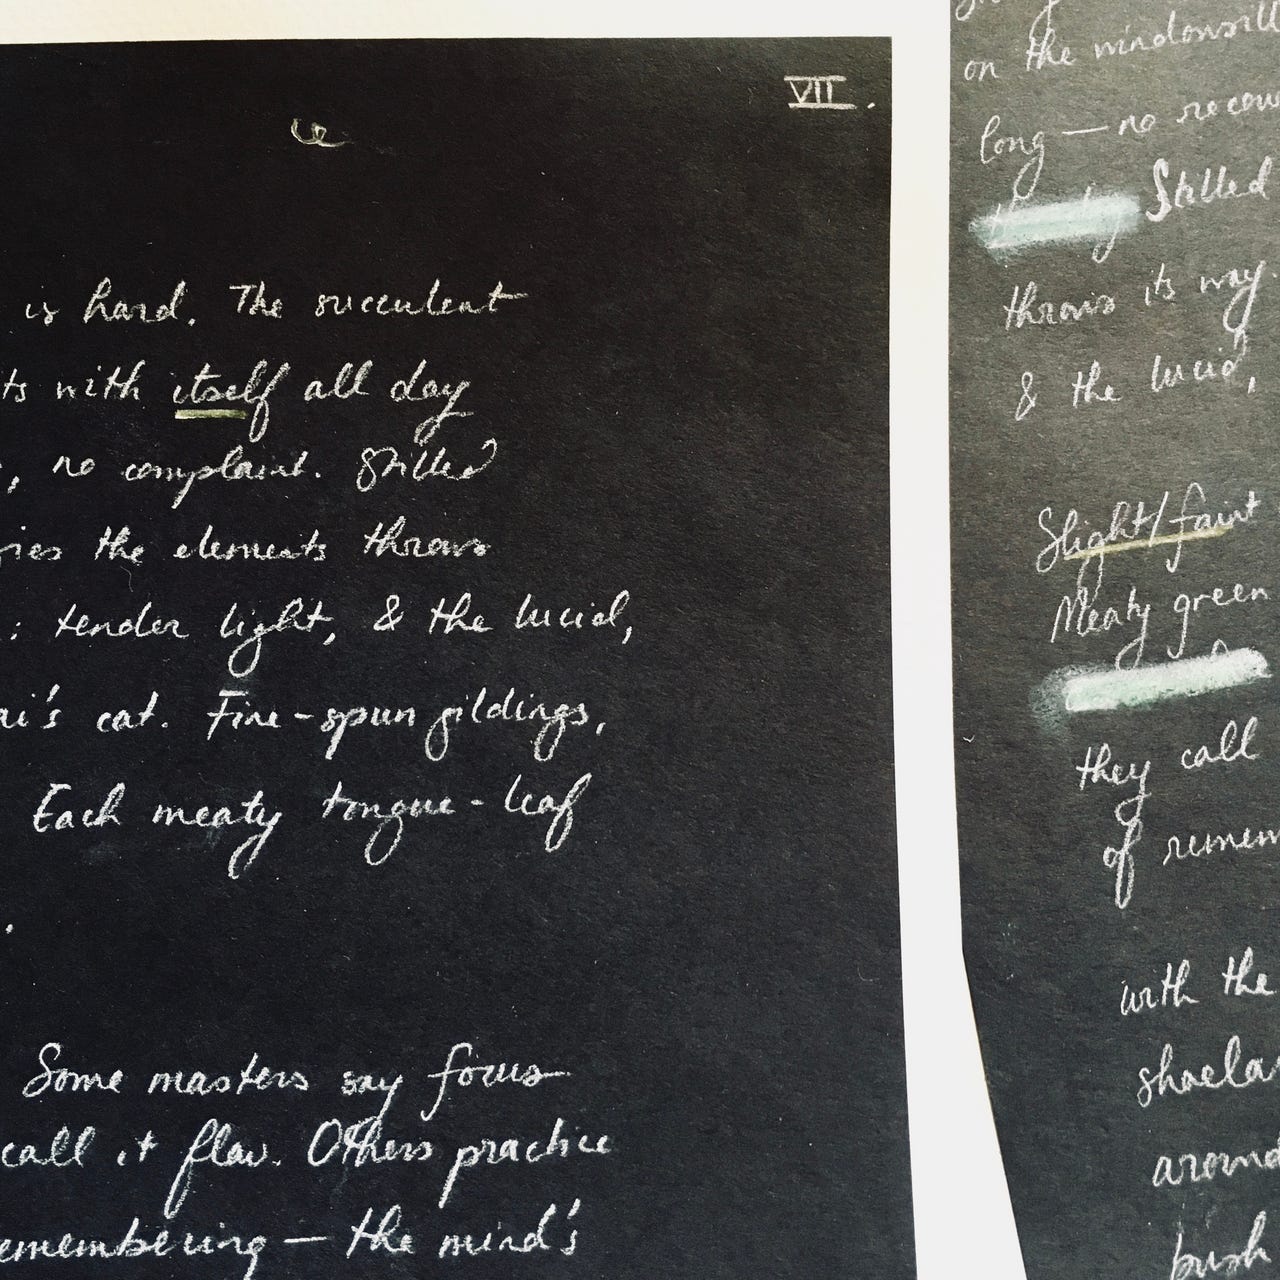 VII.
is hard. The succulent
ts with itself all day
, no complaint. Stilled
ries the elements throws
: tender light, & the lucid,
ai's cat. Fine-spun gildings,
Each meaty tongue-leaf
.
Some masters say focus
call it flaw. Others practice
emembering — the mind's
on the windowsill
long — no recou
Stilled
throws its way.
& the lucid,
Slight/faint
Meaty green
they call
of remem
with the
shoela
around
bush